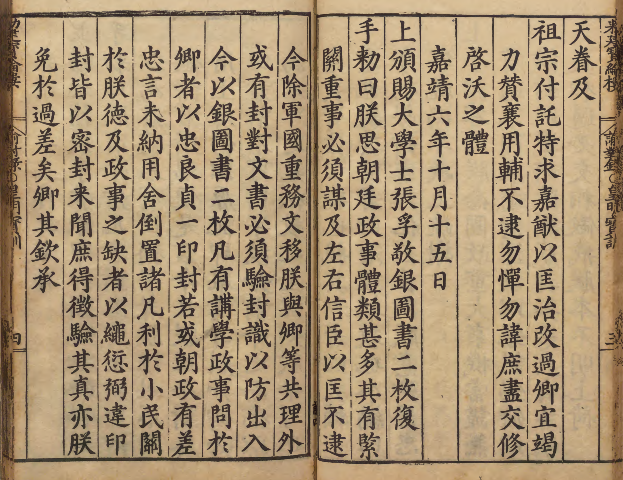 天眷及
祖宗付託特求嘉猷以匡治改過卿宜竭
力贊襄用輔不逮勿憚勿諱庶盡交修
啓沃之體
嘉靖六年十月十五日
上頒賜大學士張孚敬銀圖書二枚復
手勑曰朕思朝廷政事體類甚多其有緊
關重事必須謀及左右信臣以匡不逮
今除軍國重務文移朕與卿等共理外
或有封對文書必須驗封識以防出入
今以銀圖書二枚凡有講學政事問於
卿者以忠良貞一印封若或朝政有差
忠言未納用舍倒置諸凡利於小民關
於朕德及政事之缺者以繩愆弼違印
封皆以密封来聞庶得徵驗其真亦朕
免於過差矣卿其欽承
四